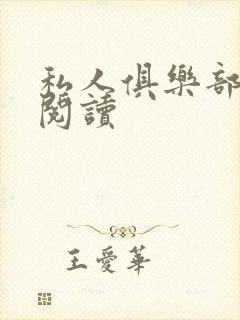 私人俱樂部
閱讀
王愛華